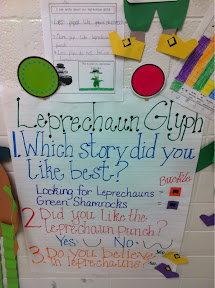 Leprechaun Glyph
1. Which story did you
like best?
Buckles
Looking for Leprechauns =
Green Shamrocks =
2. Did you like the
leprechaun punch?
Yes No
3. Do you believe
in leprechauns?